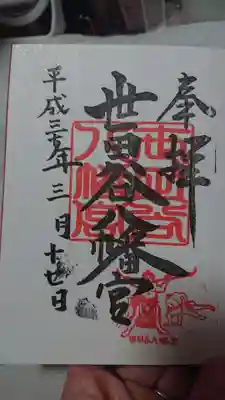 奉拝
世田谷八幡宮
平成三十年三月十七日